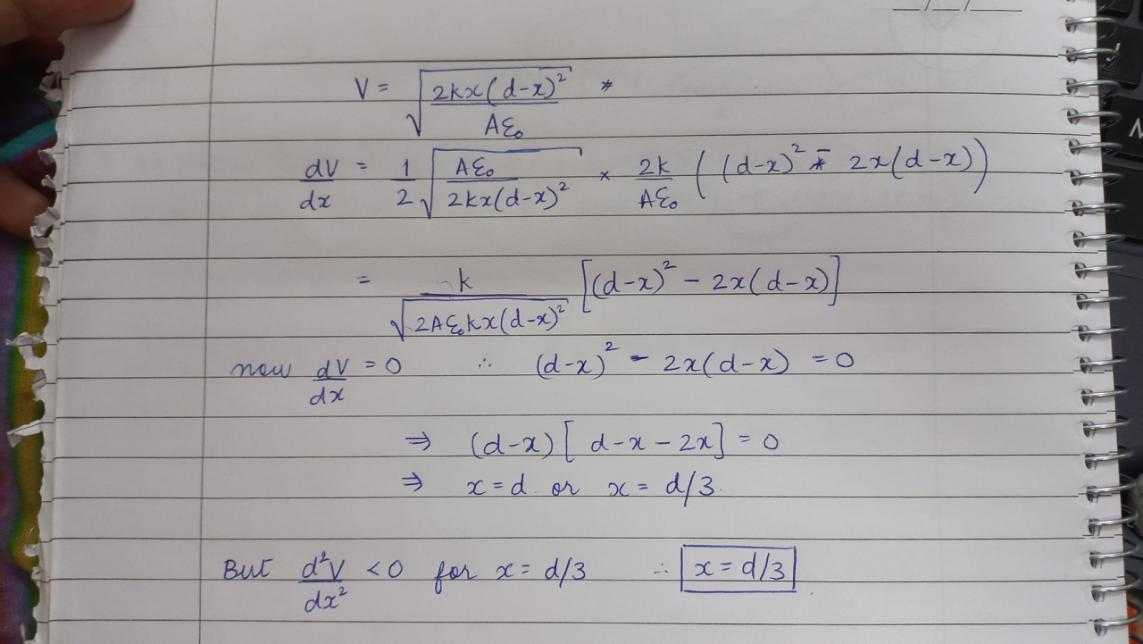 __/__/____
V = √(2kx(d-x)²/Aε₀) *
dV/dx = 1/2 √(Aε₀/2kx(d-x)²) × 2k/Aε₀ ((d-x)² - 2x(d-x))
= k/√(2Aε₀kx(d-x)²) [(d-x)² - 2x(d-x)]
now dV/dx = 0 ∴ (d-x)² - 2x(d-x) = 0
⇒ (d-x)[d-x-2x] = 0
⇒ x = d or x = d/3.
But d²V/dx² < 0 for x = d/3 ∴ x = d/3